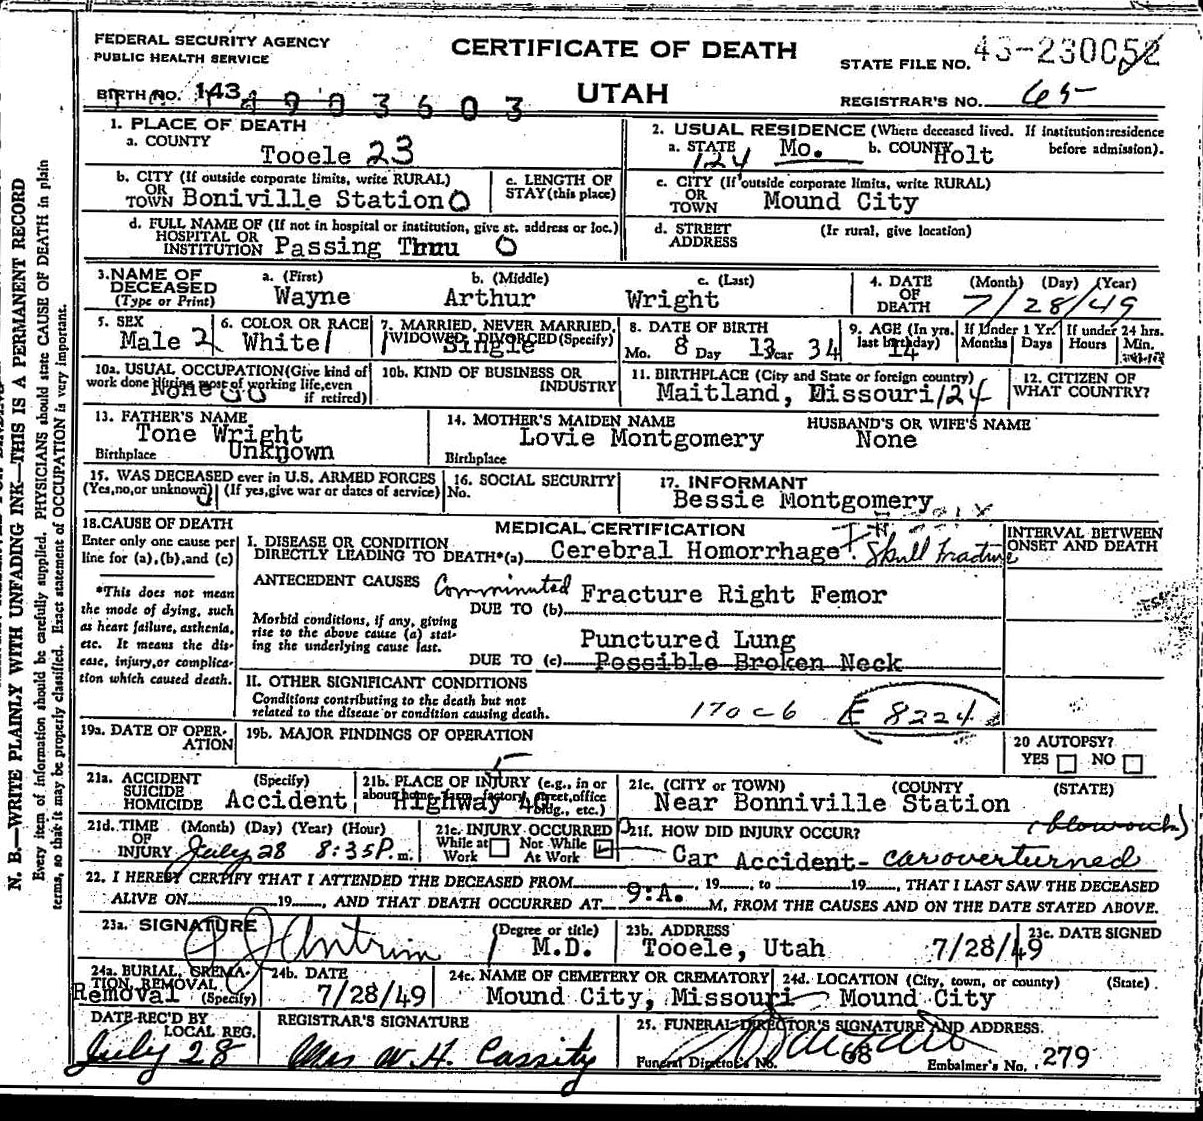 FEDERAL SECURITY AGENCY
PUBLIC HEALTH SERVICE
CERTIFICATE OF DEATH
UTAH
STATE FILE NO. 43-230052
BIRTH NO. 143 4903603
REGISTRAR'S NO. 65
1. PLACE OF DEATH
a. COUNTY
Tooele 23
2. USUAL RESIDENCE (Where deceased lived. If institution:residence before admission).
a. STATE Mo. b. COUNTY Holt
124
b. CITY (If outside corporate limits, write RURAL)
OR TOWN Boniville Station O
c. LENGTH OF STAY (this place)
c. CITY (If outside corporate limits, write RURAL)
OR TOWN Mound City
d. FULL NAME OF (If not in hospital or institution, give st. address or loc.)
HOSPITAL OR INSTITUTION Passing Thru O
d. STREET ADDRESS (If rural, give location)
3. NAME OF DECEASED (Type or Print)
a. (First) Wayne
b. (Middle) Arthur
c. (Last) Wright
4. DATE OF DEATH (Month) (Day) (Year)
7/28/49
5. SEX Male 2
6. COLOR OR RACE White 1
7. MARRIED, NEVER MARRIED, WIDOWED, DIVORCED (Specify) Single
8. DATE OF BIRTH
Mo. 8 Day 13 Year 34
9. AGE (In yrs. last birthday) 14
If Under 1 Yr. Months Days
If under 24 hrs. Hours Min.
10a. USUAL OCCUPATION (Give kind of work done during most of working life, even if retired) None
10b. KIND OF BUSINESS OR INDUSTRY
11. BIRTHPLACE (City and State or foreign country)
Maitland, Missouri 124
12. CITIZEN OF WHAT COUNTRY?
13. FATHER'S NAME
Tone Wright
Birthplace Unknown
14. MOTHER'S MAIDEN NAME
Lovie Montgomery
Birthplace
HUSBAND'S OR WIFE'S NAME
None
15. WAS DECEASED ever in U.S. ARMED FORCES
(Yes, no, or unknown) (If yes, give war or dates of service)
16. SOCIAL SECURITY No.
17. INFORMANT
Bessie Montgomery
18. CAUSE OF DEATH
Enter only one cause per line for (a), (b), and (c)
*This does not mean the mode of dying, such as heart failure, asthenia, etc. It means the disease, injury, or complication which caused death.
MEDICAL CERTIFICATION
INTERVAL BETWEEN ONSET AND DEATH
I. DISEASE OR CONDITION
DIRECTLY LEADING TO DEATH*(a) Cerebral Homorrhage + Skull Fracture
ANTECEDENT CAUSES Comminuted Fracture Right Femor
DUE TO (b)
Morbid conditions, if any, giving rise to the above cause (a) stating the underlying cause last.
Punctured Lung
DUE TO (c) Possible Broken Neck
II. OTHER SIGNIFICANT CONDITIONS
Conditions contributing to the death but not
related to the disease or condition causing death.
170c6 E 8224
19a. DATE OF OPERATION
19b. MAJOR FINDINGS OF OPERATION
20 AUTOPSY?
YES NO
21a. ACCIDENT SUICIDE HOMICIDE (Specify) Accident
21b. PLACE OF INJURY (e.g., in or about home, farm, factory, street, office bldg., etc.) Highway 40
21c. (CITY or TOWN) (COUNTY) (STATE)
Near Bonniville Station
21d. TIME OF INJURY (Month) (Day) (Year) (Hour)
July 28 8:35 P. m.
21e. INJURY OCCURRED
While at Work Not While At Work
21f. HOW DID INJURY OCCUR? (blowout)
Car Accident- car overturned
22. I HEREBY CERTIFY THAT I ATTENDED THE DECEASED FROM , 19 , to 19 , THAT I LAST SAW THE DECEASED
ALIVE ON 19 , AND THAT DEATH OCCURRED AT 9:A. M, FROM THE CAUSES AND ON THE DATE STATED ABOVE.
23a. SIGNATURE (Degree or title) M.D.
23b. ADDRESS
Tooele, Utah
23c. DATE SIGNED
7/28/49
24a. BURIAL, CREMATION, REMOVAL (Specify) Removal
24b. DATE
7/28/49
24c. NAME OF CEMETERY OR CREMATORY
Mound City, Missouri
24d. LOCATION (City, town, or county) (State)
Mound City
DATE REC'D BY LOCAL REG.
July 28
REGISTRAR'S SIGNATURE
Mrs W. H. Cassity
25. FUNERAL DIRECTOR'S SIGNATURE AND ADDRESS.
Funeral Director's No. 68 Embalmer's No. 279
N. B.—WRITE PLAINLY WITH UNFADING INK—THIS IS A PERMANENT RECORD
Every item of information should be carefully supplied. PHYSICIANS should state CAUSE OF DEATH in plain
terms, so that it may be properly classified. Exact statement of OCCUPATION is very important.